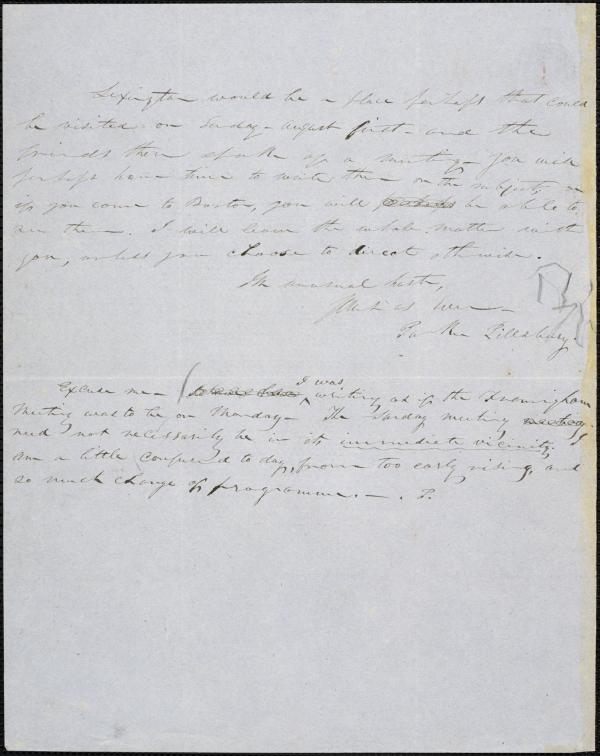 Lexington would be a place perhaps that could
be visited on Sunday - August first - and the
friends there spoke of a meeting - you will
perhaps have time to write them on the subject, or
if you come to Boston, you will be able to
see them. I will leave the whole matter with
you, unless you choose to direct otherwise.
In unusual haste,
Just as ever -
Parker Pillsbury.
Excuse me - ( I was writing as if the Framingham
Meeting was to be on Monday - The Sunday meeting
need not necessarily be in its immediate vicinity. I
am a little confused to day, from too early rising, and
so much change of programme. - . P.